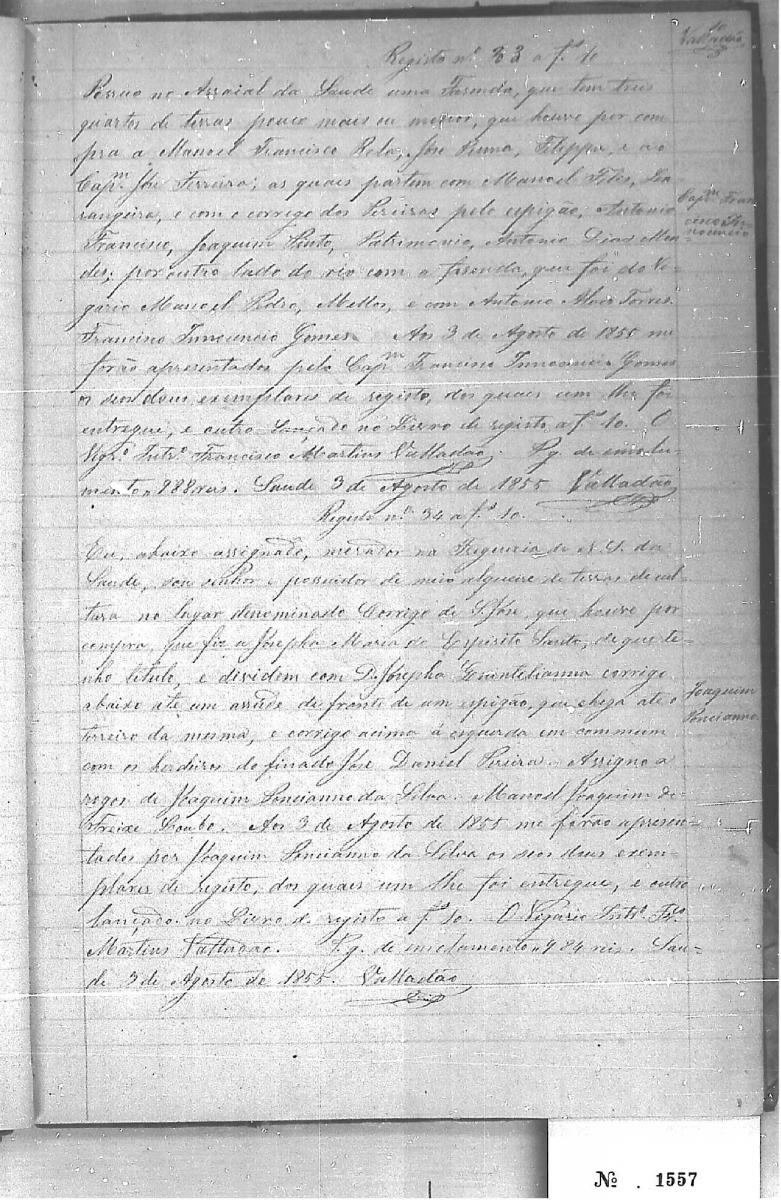 10
Valladão
Registo nº 33 a fs 10
Possuo no Arraial da Saude uma Fazenda, que tem tres
quartos de terras pouco mais ou menos, que houve por com
pra a Manoel Francisco Rela, José Penna, Filippe, e ao
Capm. José Ferreira; as quais partem com Manoel Felis, La
rangeira, e com o corrego dos Pereiras pelo espigão, Antonio
Francisco, Joaquim Pinto, Patrimonio, Antonio Dias Men-
des; por outro lado do rio com a fazenda, que foi do Vi-
gario Manoel Pedro, Mellos, e com Antonio Alves Torres.
Francisco Innocencio Gomes. Aos 3 de Agosto de 1855 me
forão apresentados pelo Capm Francisco Innocencio Gomes
os seos dous exemplares de registo, dos quais um lhe foi
entregue, e outro lançado no Livro de registo a fs 10. O
Vigrº Intrº Francisco Martins Valladão. Pg. de emolu-
mento 988 reis. Saude 3 de Agosto de 1855 Valladão
Capm Fran
cisco In-
nocencio
Registo nº 34 a fs 10.
Eu, abaixo assignado, morador na Freguezia de N. S. da
Saude, sou senhor e possuidor de meio alqueire de terras de cul
tura no lugar denominado Corrigo de S. José, que houve por
compra, que fiz a Josepha Maria do Espirito Santo, de que te-
nho titulo, e dividem com D. Josepha Quintilianna corrigo
abaixo até um assude defronte de um espigão, que chega até o
terreiro da mesma, e corrigo acima á esquerda em commum
com os herdeiros do finado José Daniel Pereira. Assigno a
rogos de Joaquim Poncianno da Silva. Manoel Joaquim de
Freixe Loubo. Aos 3 de Agosto de 1855 me forão apresen-
tados por Joaquim Poncianno da Silva os seos dous exem-
plares de registo, dos quais um lhe foi entregue, e outro
lançado no Livro de registo a fs 10. O Vigario Intrº Frº
Martins Valladão. Pg. de emolumento 984 reis. Sau-
de 3 de Agosto de 1855. Valladão
Joaquim
Poncianno
Nº . 1557